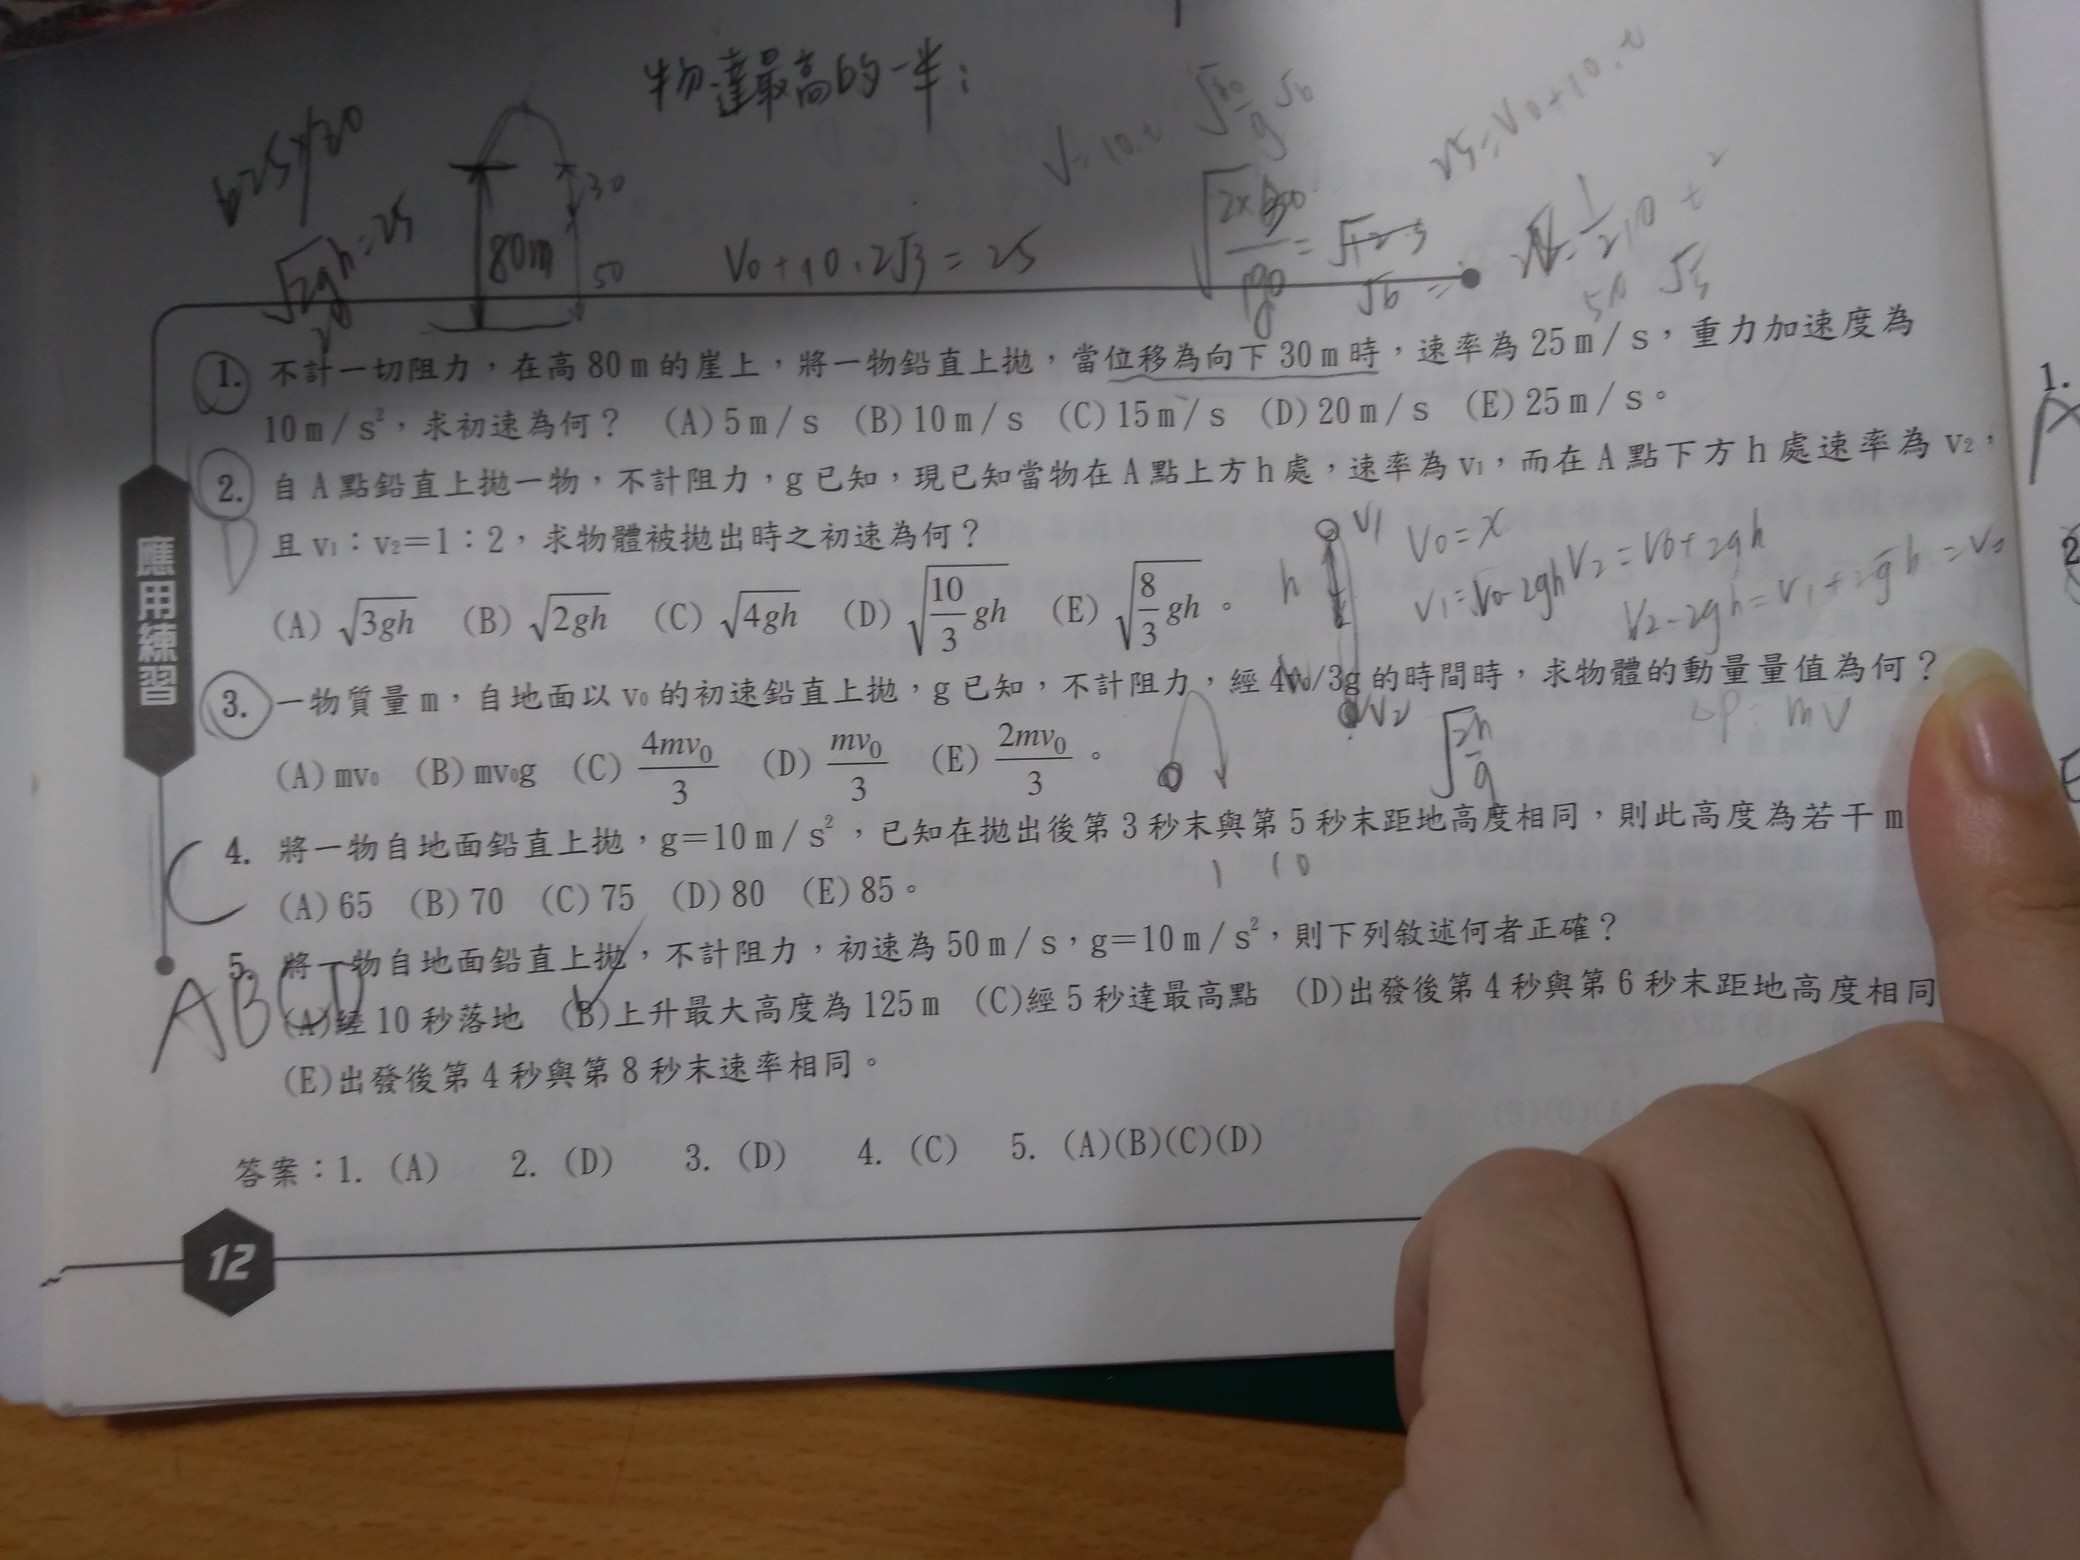 物達最高的一半:
625/20
√2gh=25
20
80m
30
50
V0+10.2√3=25
25=V0+10.t
1. 不計一切阻力，在高80m的崖上，將一物鉛直上拋，當位移為向下30m時，速率為25m/s，重力加速度為
10m/s²，求初速為何？ (A)5m/s (B)10m/s (C)15m/s (D)20m/s (E)25m/s。
2. 自A點鉛直上拋一物，不計阻力，g已知，現已知當物在A點上方h處，速率為v₁，而在A點下方h處速率為v₂，
D
且v₁：v₂=1：2，求物體被拋出時之初速為何？
(A)√3gh (B)√2gh (C)√4gh (D)√(10/3 gh) (E)√(8/3 gh)。
h
V1
V0=x
V1=V0-2gh V2=V0+2gh
V2-2gh=V1+2gh=V0
3. 一物質量m，自地面以v₀的初速鉛直上拋，g已知，不計阻力，經4v₀/3g的時間時，求物體的動量量值為何？
V2
√2h/g
ΔP=mV
(A)mv₀ (B)mv₀g (C)4mv₀/3 (D)mv₀/3 (E)2mv₀/3。
4. 將一物自地面鉛直上拋，g=10m/s²，已知在拋出後第3秒末與第5秒末距地高度相同，則此高度為若干m
C
1 10
(A)65 (B)70 (C)75 (D)80 (E)85。
5. 將一物自地面鉛直上拋，不計阻力，初速為50m/s，g=10m/s²，則下列敘述何者正確？
ABCD
(A)經10秒落地 (B)上升最大高度為125m (C)經5秒達最高點 (D)出發後第4秒與第6秒末距地高度相同
(E)出發後第4秒與第8秒末速率相同。
答案：1. (A) 2. (D) 3. (D) 4. (C) 5. (A)(B)(C)(D)
12
應用練習
1.
2